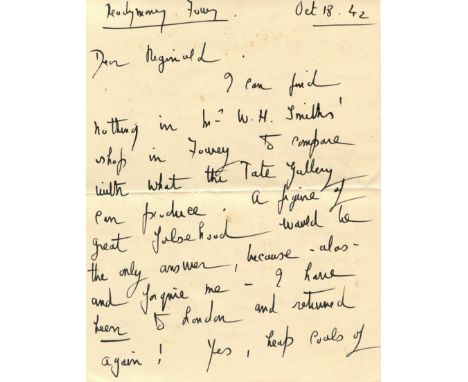 Readymoney. Fowey. Oct 18. 42
Dear Reginald.
I can find
nothing in Mr W. H. Smiths'
shop in Fowey to compare
with what the Tate Gallery
can produce. A figure of
great falsehood would be
the only answer, because - alas -
and forgive me - I have
been to London and returned
again! Yes, heap coals of